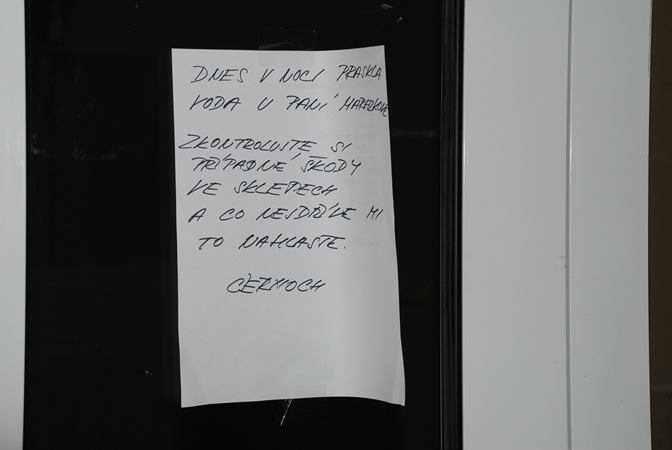 DNES V NOCI PRASKLA
VODA U PANÍ
ZKONTROLUJTE SI
PŘÍPADNÉ ŠKODY
VE SKLEPECH
A CO NEJDŘÍVE MI
TO NAHLASTE.
ČERNOCH